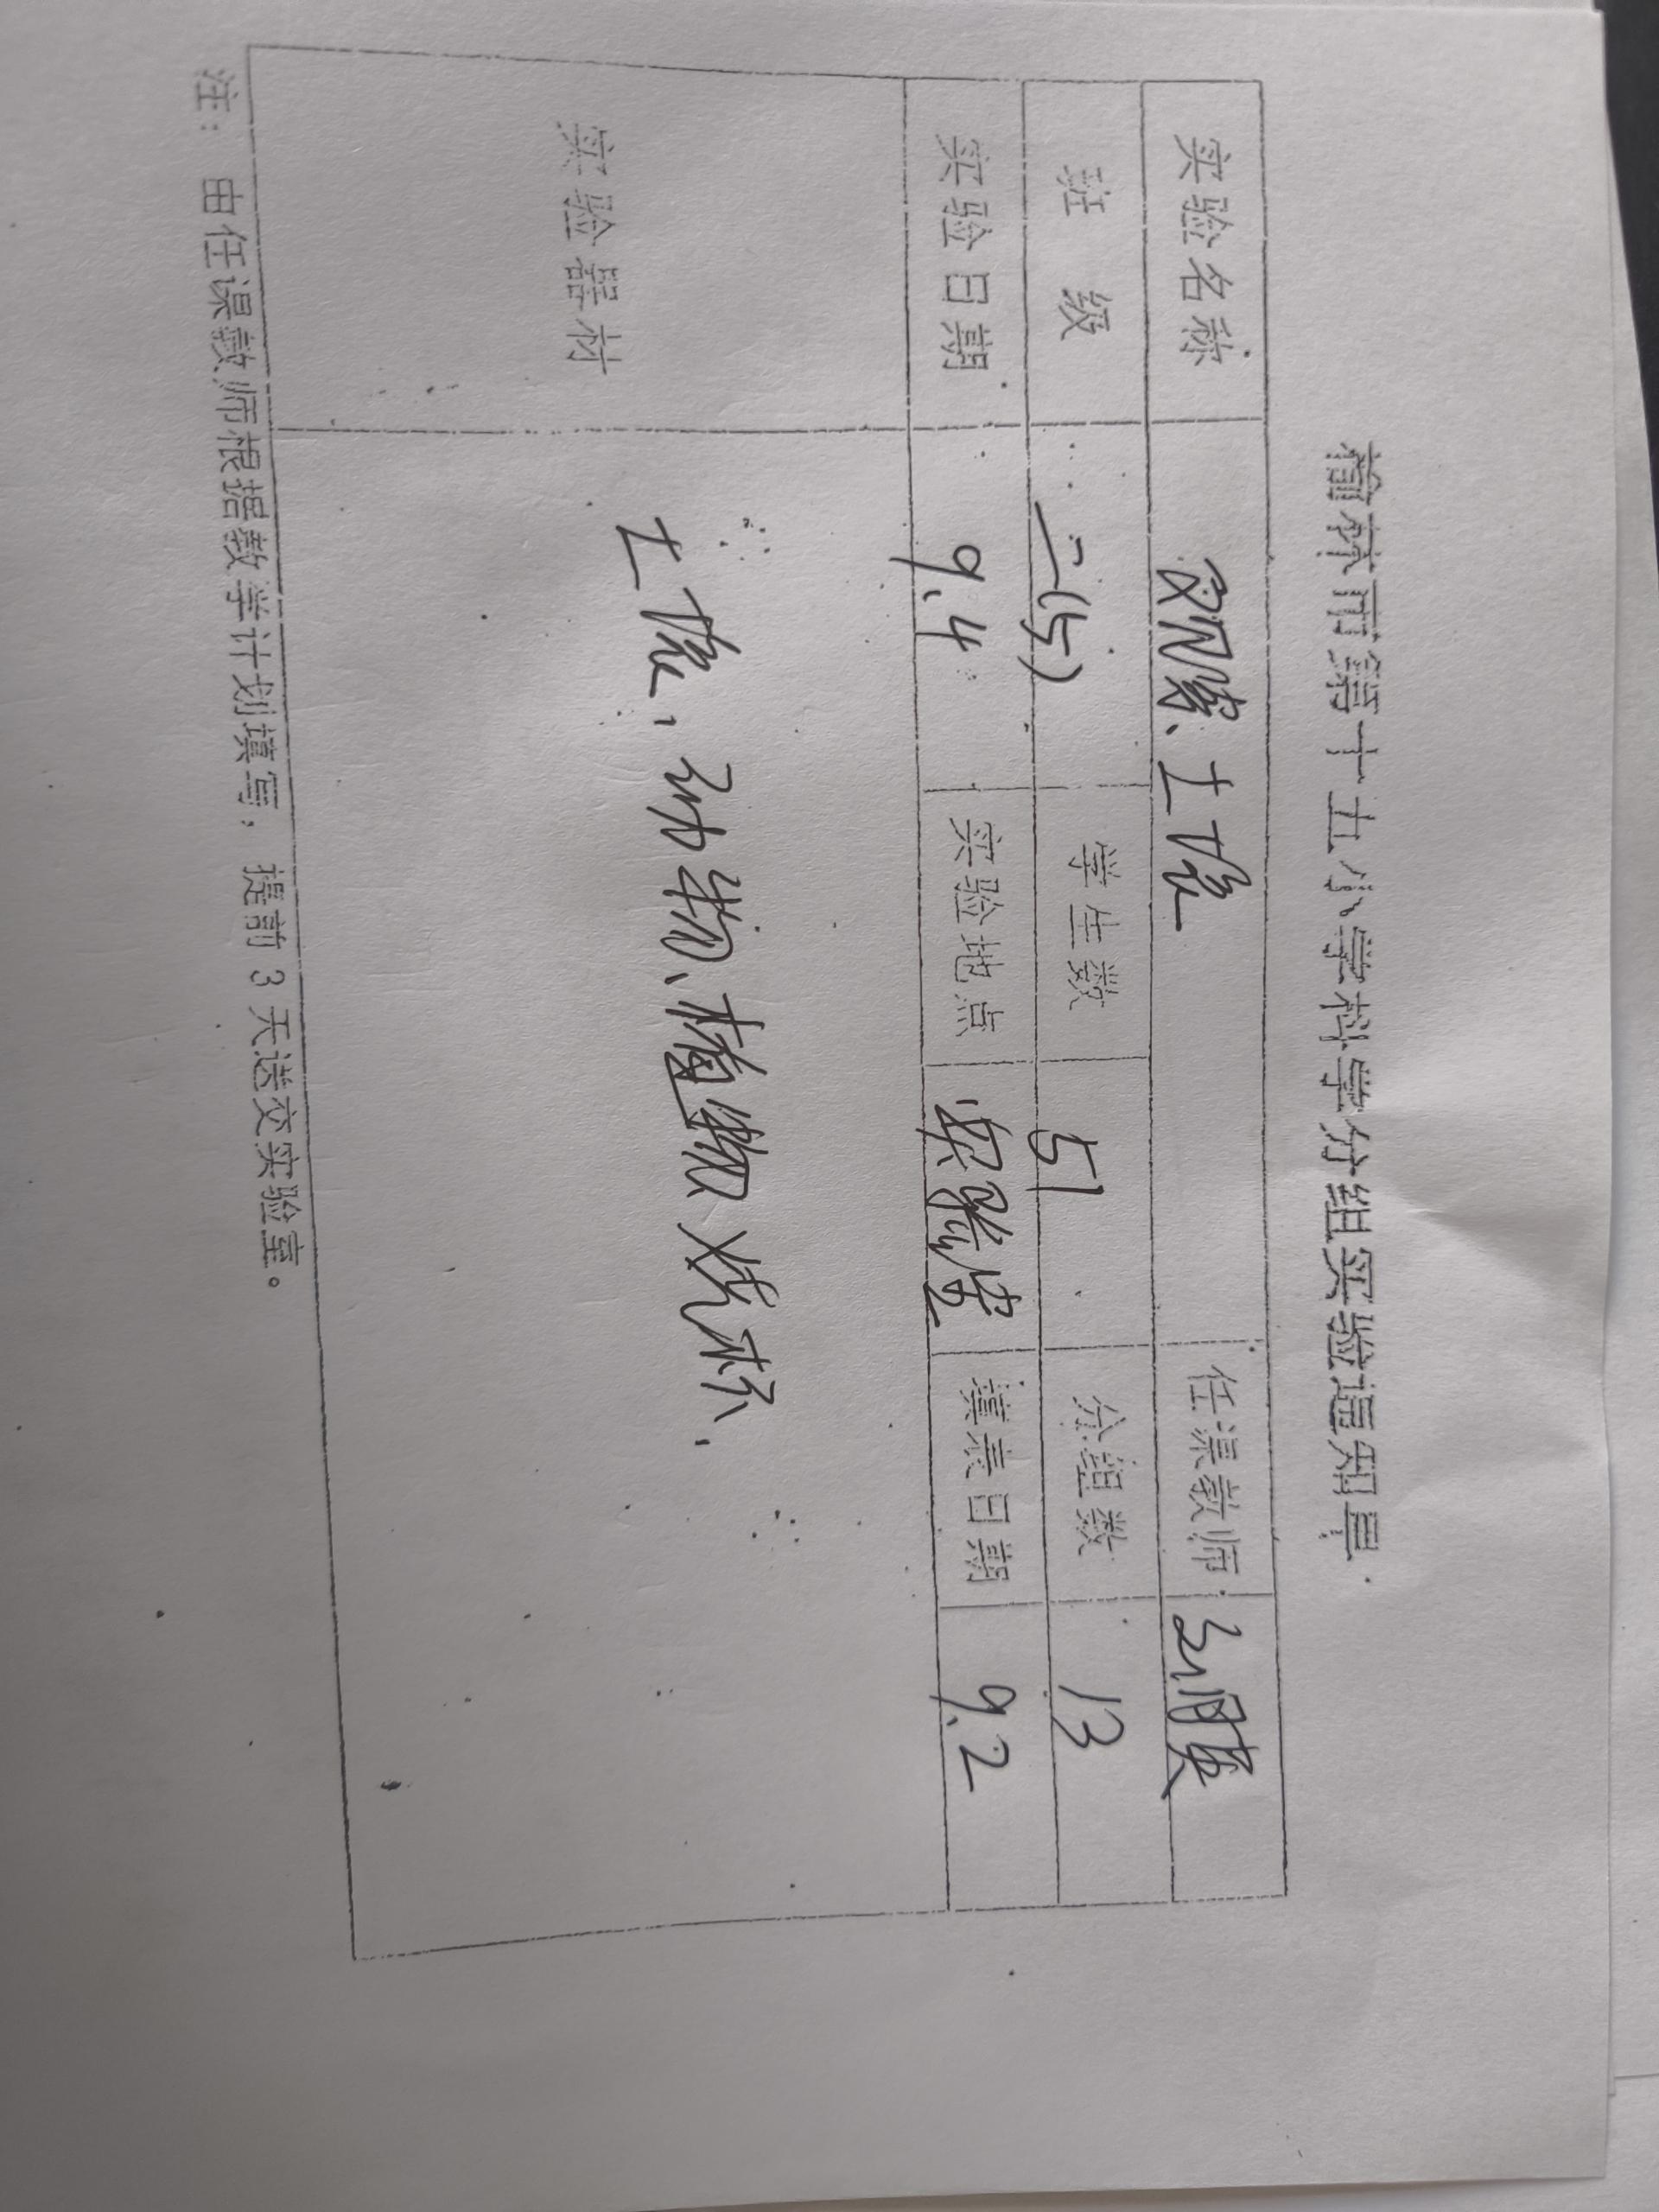 榆林市第十五小学科学分组实验通知单
实验名称 观察土壤 任课教师
班 级 二(5) 学生数 51 分组数 13
实验日期 9.4 实验地点 实验室 填表日期 9.2
实验器材 土壤、动物、植物 烧杯、
注: 由任课教师根据教学计划填写, 提前 3 天送交实验室。